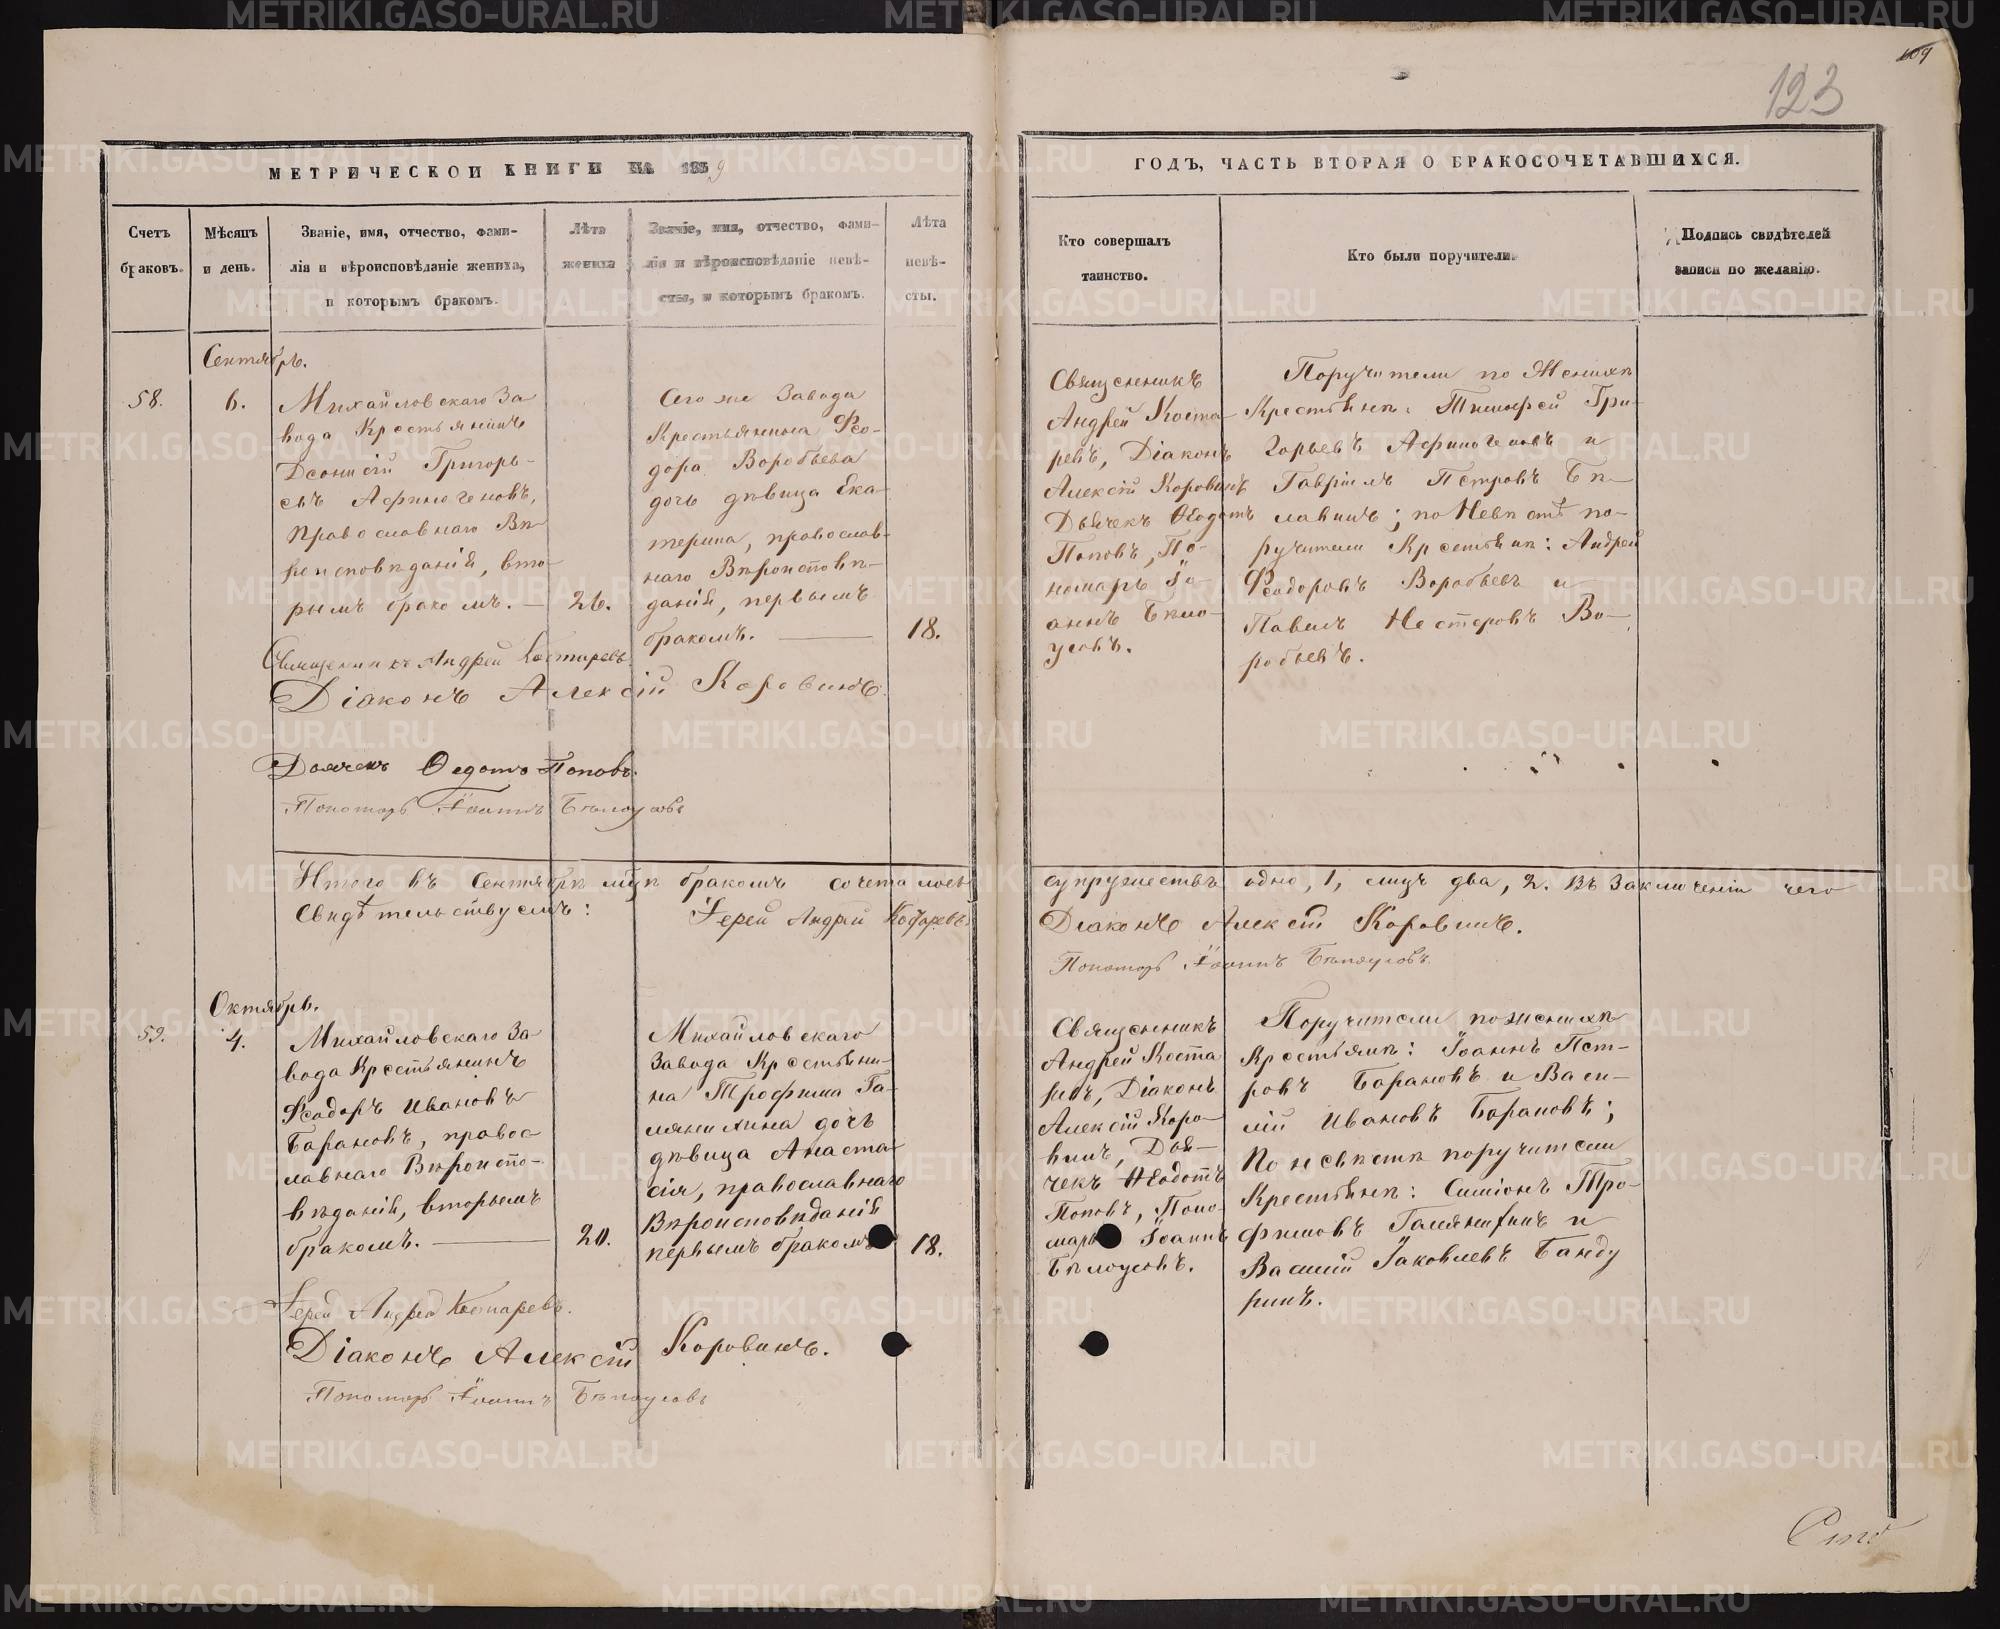 109
123
МЕТРИЧЕСКОЙ КНИГИ НА 1859
ГОДЪ, ЧАСТЬ ВТОРАЯ О БРАКОСОЧЕТАВШИХСЯ.
Счетъ
браковъ.
Мѣсяцъ
и день.
Званіе, имя, отчество, фами-
лія и вѣроисповѣданіе жениха,
и которымъ бракомъ.
Лѣта
жениха
Званіе, имя, отчество, фами-
лія и вѣроисповѣданіе невѣ-
сты, и которымъ бракомъ.
Лѣта
невѣ-
сты.
Кто совершалъ
таинство.
Кто были поручители.
Подпись свидѣтелей
записи по желанію.
Сентябрь.
58.
6.
Михайловскаго За
вода Крестьянинъ
Діонисій Григорь-
евъ Афиногеновъ,
православнаго Вѣ
роисповѣданія, вто-
рымъ бракомъ. —
26.
Сего же Завода
Крестьянина Фео-
дора Воробьева
дочь дѣвица Ека-
терина, православ-
наго Вѣроисповѣ-
данія, первымъ
бракомъ. —
18.
Священникъ
Андрей Коста-
ревъ, Діаконъ
Алексій Коровинъ
Дьячекъ Ѳеодотъ
Поповъ, По-
номарь Іо-
аннъ Бѣло-
усовъ.
Поручители по Женихѣ
Крестьяне: Тимофей Гри-
горьевъ Афиногеновъ и
Гавріилъ Петровъ Бѣ-
лавинъ; по Невѣстѣ по-
ручители Крестьяне: Андрей
Феодоровъ Воробьевъ и
Павелъ Нестеровъ Во-
робьевъ.
Священникъ Андрей Костаревъ.
Діаконъ Алексій Коровинъ.
Дьячекъ Ѳедотъ Поповъ.
Пономарь Іоаннъ Бѣлоусовъ
Итого въ Сентябрѣ мцѣ бракомъ сочеталось
супружествъ одно, 1, лицъ два, 2. Въ Заключеніи чего
Свидѣтельствуемъ: Іерей Андрей Костаревъ
Діаконъ Алексій Коровинъ.
Пономарь Іоаннъ Бѣлоусовъ.
Октябрь.
59.
4.
Михайловскаго За-
вода Крестьянинъ
Феодоръ Ивановъ
Барановъ, правос-
лавнаго Вѣроиспо-
вѣданія, вторымъ
бракомъ. —
20.
Михайловскаго
Завода Крестьяни-
на Трофима Га-
лянихина дочь
дѣвица Анаста-
сія, православнаго
Вѣроисповѣданія
первымъ бракомъ
18.
Священникъ
Андрей Коста
ревъ, Діаконъ
Алексій Коро-
винъ, Дья-
чекъ Ѳеодотъ
Поповъ, Поно-
марь Іоаннъ
Бѣлоусовъ.
Поручители по женихѣ
Крестьяне: Іоаннъ Пет-
ровъ Барановъ и Васи-
лій Ивановъ Барановъ;
По невѣстѣ поручители
Крестьяне: Симіонъ Тро-
фимовъ Галянихинъ и
Василій Іаковлевъ Банду
ринъ.
Іерей Андрей Костаревъ.
Діаконъ Алексій Коровинъ.
Пономарь Іоаннъ Бѣлоусовъ
METRIKI.GASO-URAL.RU